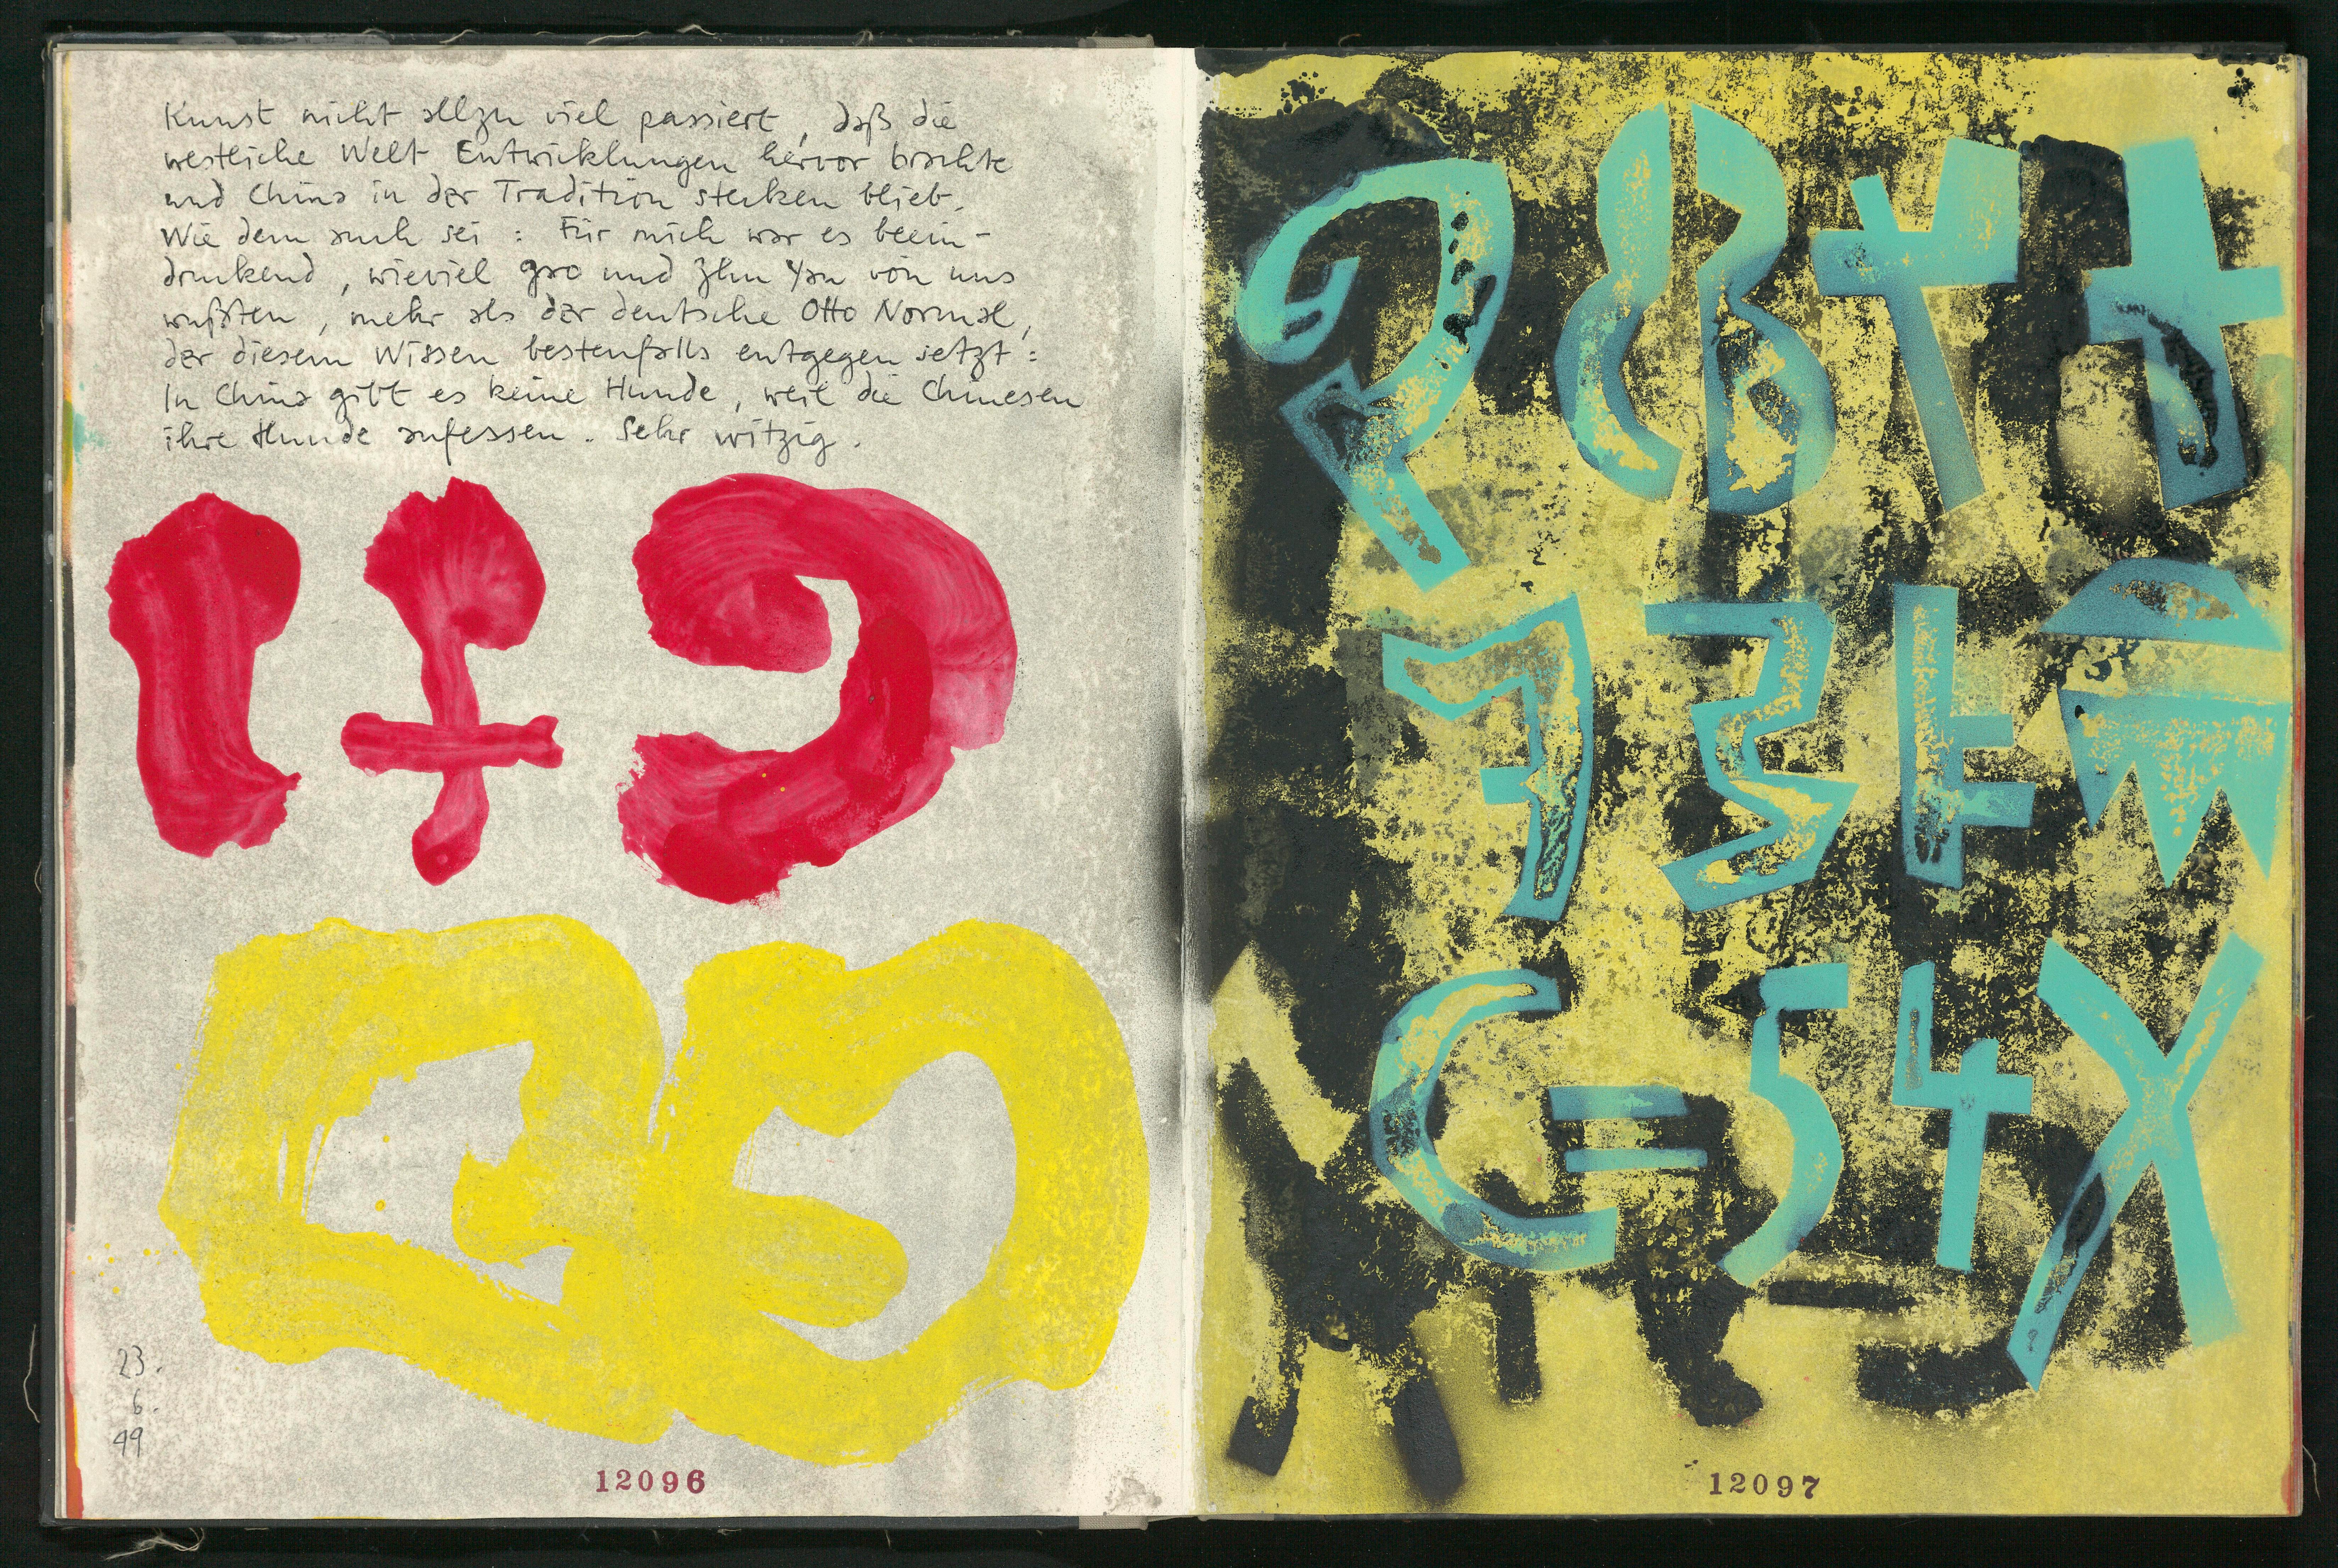 Kunst nicht allzu viel passiert, daß die
westliche Welt Entwicklungen hervor brachte
und China in der Tradition stecken blieb.
Wie dem auch sei : Für mich war es beein-
druckend, wieviel gao und Zhu Yan von uns
wußten, mehr als der deutsche Otto Normal,
der diesem Wissen bestenfalls entgegen setzt :
In China gibt es keine Hunde, weil die Chinesen
ihre Hunde aufessen. Sehr witzig.
23.
6.
99
12096
12097